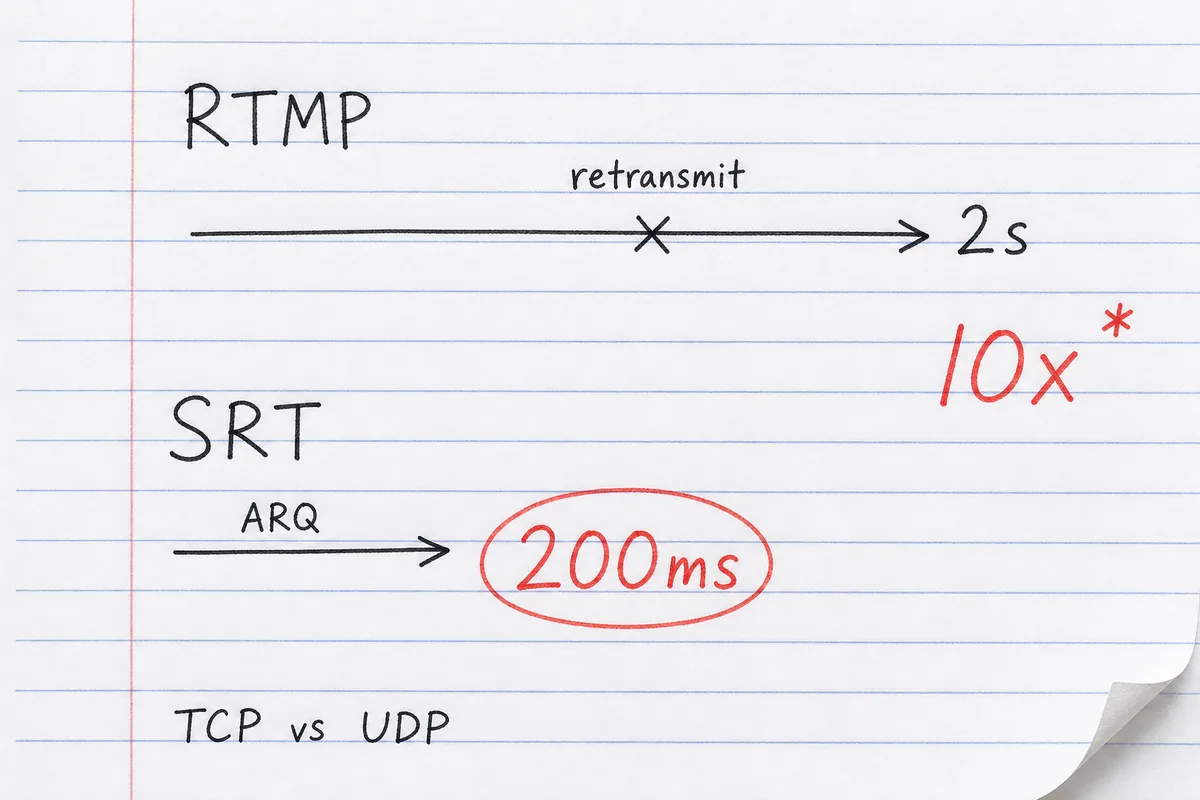 RTMP
retransmit
2s
10x*
SRT
ARQ
200ms
TCP vs UDP